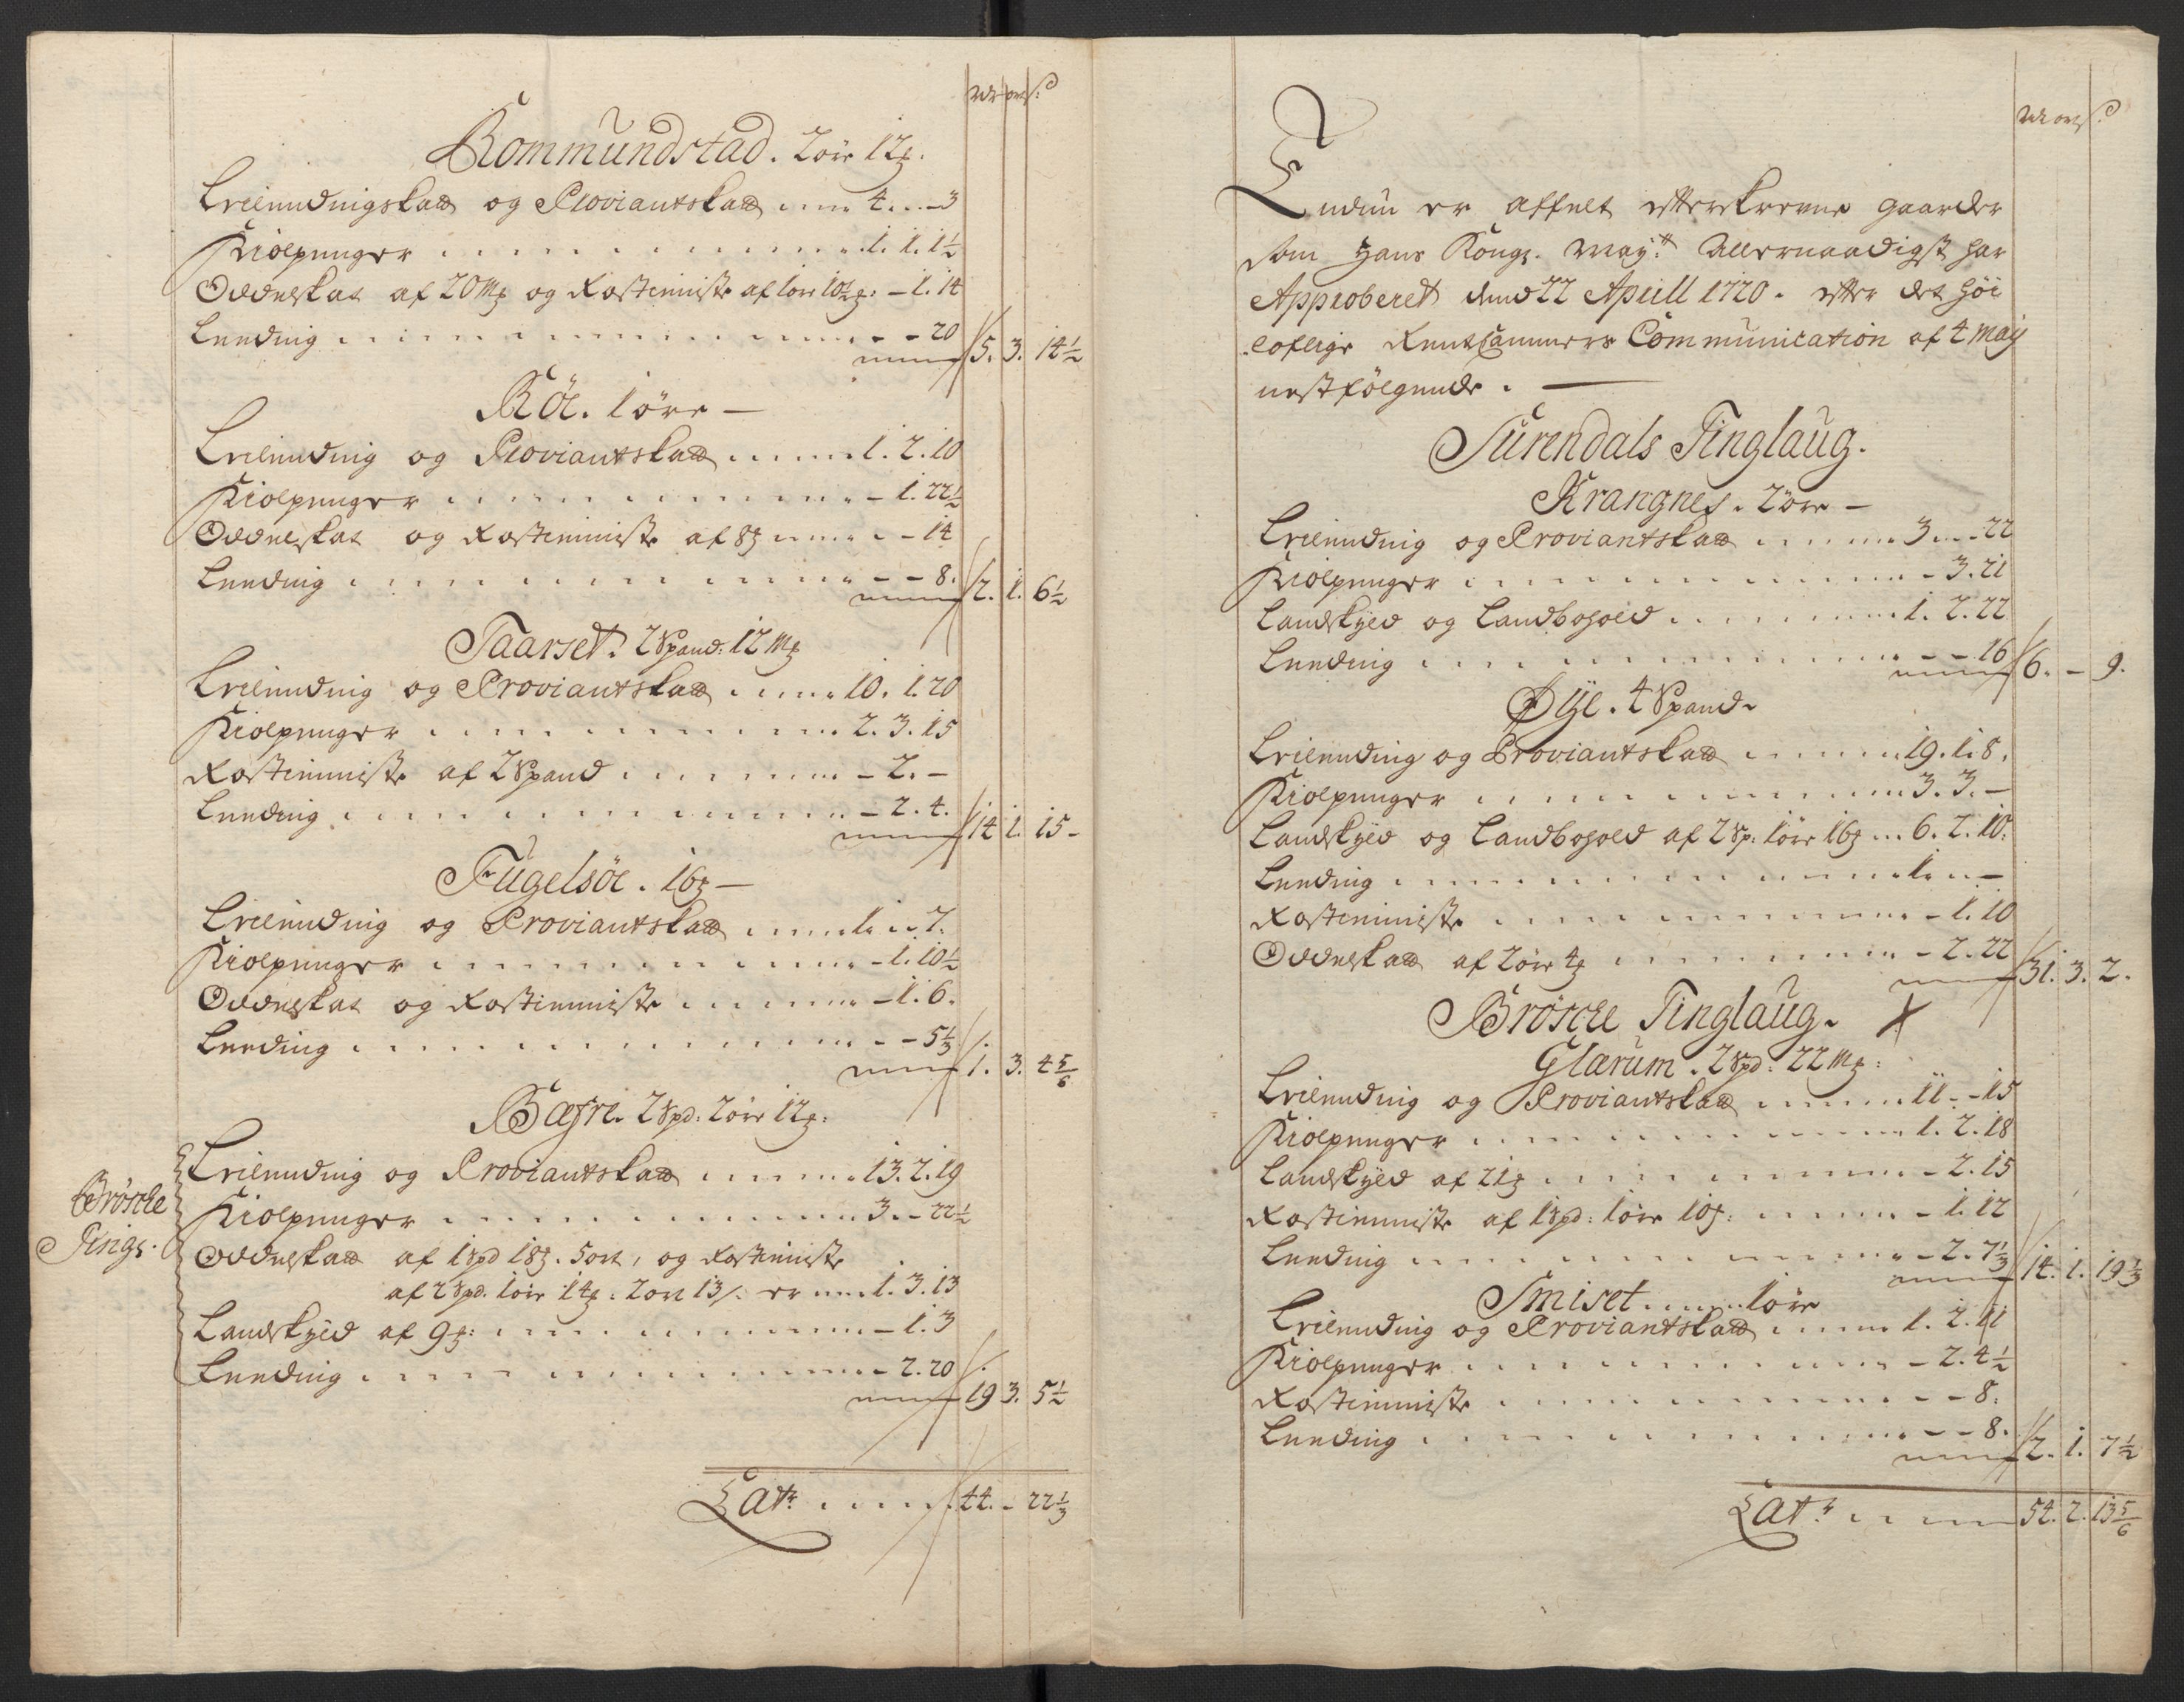 Rdr ort ß
Rommundstad. 2 øre 12 ꝸ.
Leilendingskatt og Proviantskatt . . . . 4. - 3
Kiølpenger . . . . 1. 1. 1½
Oddelskat af 20 mꝸ og Rostieniste af 1 øre 10½ ꝸ: - 1. 14
Leeding . . . . - - 20
5. 3. 14½
Röe. 1 øre -
Leilending og Proviantskatt . . . . 1. 2. 10
Kiølpenger . . . . - 1. 22½
Oddelskat og Rostieniste af 8 ꝸ . . . . - 14
Leeding . . . . - - 8.
2. 1. 6½
Taarset. 2 Spand: 12 mꝸ
Leilending og Proviantskatt . . . . 10. 1. 20
Kiølpenger . . . . 2. 3. 15
Rostieniste af 2 Spand . . . . - 2. -
Leeding . . . . - 2. 4.
14 1. 15 -
Fugelsöe. 16 ꝸ -
Leilending og Proviantskatt . . . . 1. - 7.
Kiølpenger . . . . - 1. 10½
Oddelskat og Rostieniste . . . . - 1. 6.
Leeding . . . . - - 5⅓
1. 3. 4⅚
Bæfre. 2 Spd: 2 øre 12 ꝸ:
Brøske
Tings:
Leilending og Proviantskatt . . . . 13. 2. 19
Kiølpenger . . . . 3. - 22½
Oddelskatt af 1 Spd 18 ꝸ. 5 ort, og Rostieniste
af 2 Spd. 1 øre 14 ꝸ: 2 ort 13 ß er . . . 1. 3. 13
Landskyld af 9 ꝸ: . . . . - 1. 3
Leeding . . . . - 2. 20
19 3. 5½
Lat: . . . . 44. - 22⅓
Rdr ort ß
Endnu er affelt efterskrevne gaarder
som Hans Kongl. May:tt Allernaadigst har
Approberet dend 22 Aprill 1720. efter det höi
loflige RenteCammers Communication af 4 Maij
nestfölgende. —
Surendals Tinglaug.
Krangnes. 2 øre -
Leilending og Proviantskatt . . . . 3. - 22
Kiølpenger . . . . - 3. 21
Landskyld og Landbohold . . . . 1. 2. 22
Leeding . . . . - - 16
6. - 9.
Øye. 4 Spand.
Leilending og Proviantskatt . . . . 19. 1. 8.
Kiølpenger . . . . 3. 3. -
Landskyld og Landbohold af 2 Sp: 1 øre 16 ꝸ . . 6. 2. 10.
Leeding . . . . 1. - -
Rostieniste . . . . - 1. 10
Oddelskatt af 2 øre 4 ꝸ . . . . - 2. 22
31. 3. 2.
Brøske Tinglaug.
Glærum. 2 Spd: 22 mꝸ:
Leilending og Proviantskatt . . . . 11. - 15
Kiølpenger . . . . 1. 2. 18
Landskyld af 21 ꝸ . . . . - 2. 15
Rostieniste af 1 Spd: 1 øre 10 ꝸ: . . . . - 1. 12
Leeding . . . . - 2. 7⅓
14. 1. 19⅓
Smiset . . . . 1 øre
Leilending og Proviantskatt . . . . 1. 2. 11
Kiølpenger . . . . - 2. 4½
Rostieniste . . . . - - 8.
Leeding . . . . - - 8.
2. 1. 7½
Lat: . . . . 54. 2. 13⅚